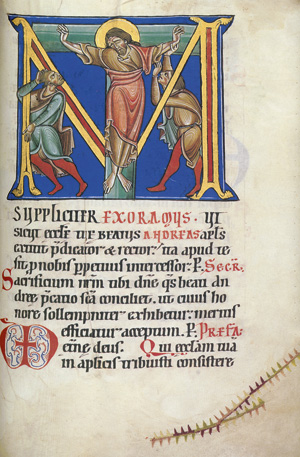 M
SUPPLICITER EXORAMUS. UT
sicut eccle tue beatus ANDREAS apls
extitit pdicator & rector. ita apud te
sit pnobis ppetuus intercessor. P. SECR.
Sacrificium nrm tibi dne qs beati an
dree pcatio sca conciliet. ut cuius ho
nore sollempniter exhibetur. meritis
efficiatur acceptum. P. PREFA
etne deus. Qui ecclam tua
in aplicis tribuisti consistere